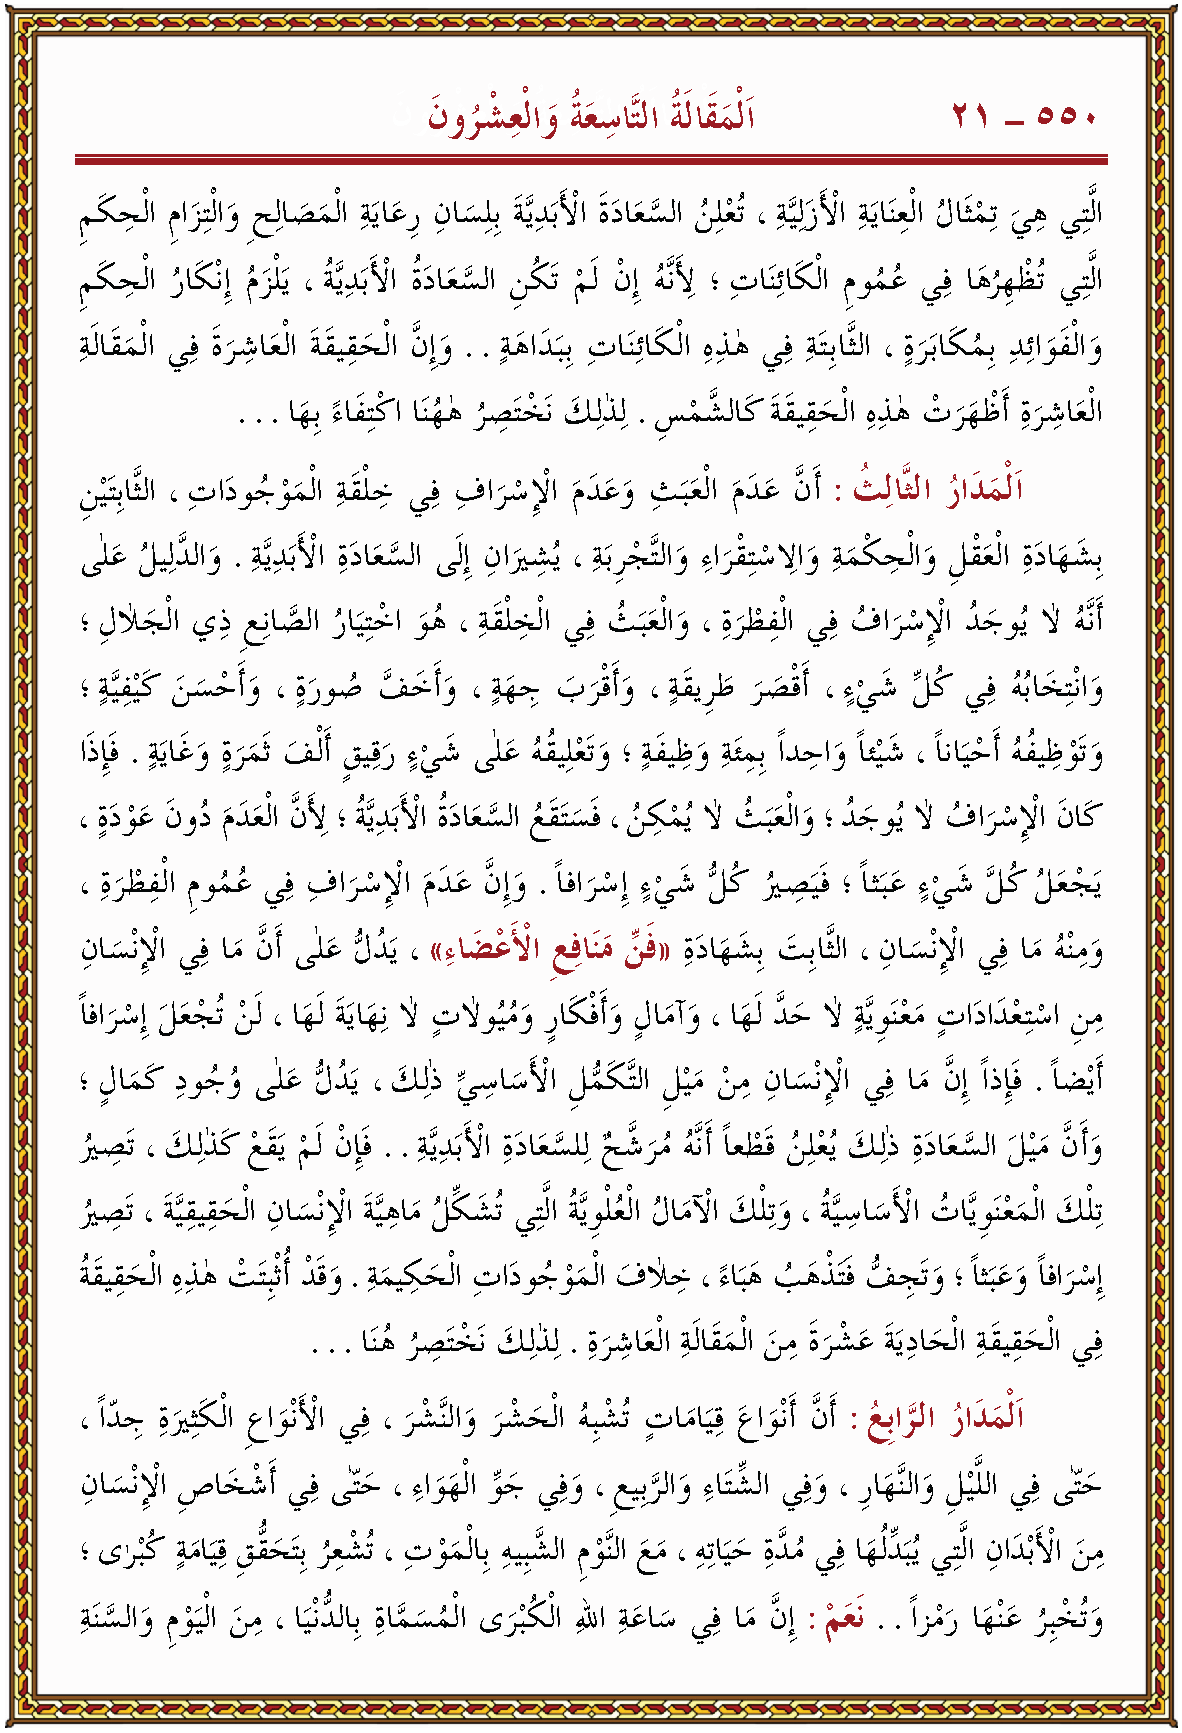 اَلْمَقَالَةُ التَّاسِعَةُ وَالْعِشْرُونَ ٥٥٠ ـ ٢١
الَّتِي هِيَ تِمْثَالُ الْعِنَايَةِ الْأَزَلِيَّةِ ، تُعْلِنُ السَّعَادَةَ الْأَبَدِيَّةَ بِلِسَانِ رِعَايَةِ الْمَصَالِحِ وَالْتِزَامِ الْحِكَمِ
الَّتِي تُظْهِرُهَا فِي عُمُومِ الْكَائِنَاتِ ؛ لِأَنَّهُ إِنْ لَمْ تَكُنِ السَّعَادَةُ الْأَبَدِيَّةُ ، يَلْزَمُ إِنْكَارُ الْحِكَمِ
وَالْفَوَائِدِ بِمُكَابَرَةٍ ، الثَّابِتَةِ فِي هٰذِهِ الْكَائِنَاتِ بِبَدَاهَةٍ . . وَإِنَّ الْحَقِيقَةَ الْعَاشِرَةَ فِي الْمَقَالَةِ
الْعَاشِرَةِ أَظْهَرَتْ هٰذِهِ الْحَقِيقَةَ كَالشَّمْسِ . لِذٰلِكَ نَخْتَصِرُ هٰهُنَا اكْتِفَاءً بِهَا . . .
اَلْمَدَارُ الثَّالِثُ : أَنَّ عَدَمَ الْعَبَثِ وَعَدَمَ الْإِسْرَافِ فِي خِلْقَةِ الْمَوْجُودَاتِ ، الثَّابِتَيْنِ
بِشَهَادَةِ الْعَقْلِ وَالْحِكْمَةِ وَالِاسْتِقْرَاءِ وَالتَّجْرِبَةِ ، يُشِيرَانِ إِلَى السَّعَادَةِ الْأَبَدِيَّةِ . وَالدَّلِيلُ عَلٰى
أَنَّهُ لاٰ يُوجَدُ الْإِسْرَافُ فِي الْفِطْرَةِ ، وَالْعَبَثُ فِي الْخِلْقَةِ ، هُوَ اخْتِيَارُ الصَّانِعِ ذِي الْجَلاٰلِ ؛
وَانْتِخَابُهُ فِي كُلِّ شَيْءٍ ، أَقْصَرَ طَرِيقَةٍ ، وَأَقْرَبَ جِهَةٍ ، وَأَخَفَّ صُورَةٍ ، وَأَحْسَنَ كَيْفِيَّةٍ ؛
وَتَوْظِيفُهُ أَحْيَاناً ، شَيْئاً وَاحِداً بِمِئَةِ وَظِيفَةٍ ؛ وَتَعْلِيقُهُ عَلٰى شَيْءٍ رَقِيقٍ أَلْفَ ثَمَرَةٍ وَغَايَةٍ . فَإِذَا
كَانَ الْإِسْرَافُ لاٰ يُوجَدُ ؛ وَالْعَبَثُ لاٰ يُمْكِنُ ، فَسَتَقَعُ السَّعَادَةُ الْأَبَدِيَّةُ ؛ لِأَنَّ الْعَدَمَ دُونَ عَوْدَةٍ ،
يَجْعَلُ كُلَّ شَيْءٍ عَبَثاً ؛ فَيَصِيرُ كُلُّ شَيْءٍ إِسْرَافاً . وَإِنَّ عَدَمَ الْإِسْرَافِ فِي عُمُومِ الْفِطْرَةِ ،
وَمِنْهُ مَا فِي الْإِنْسَانِ ، الثَّابِتَ بِشَهَادَةِ «فَنِّ مَنَافِعِ الْأَعْضَاءِ» ، يَدُلُّ عَلٰى أَنَّ مَا فِي الْإِنْسَانِ
مِنِ اسْتِعْدَادَاتٍ مَعْنَوِيَّةٍ لاٰ حَدَّ لَهَا ، وَآمَالٍ وَأَفْكَارٍ وَمُيُولاٰتٍ لاٰ نِهَايَةَ لَهَا ، لَنْ تُجْعَلَ إِسْرَافاً
أَيْضاً . فَإِذاً إِنَّ مَا فِي الْإِنْسَانِ مِنْ مَيْلِ التَّكَمُّلِ الْأَسَاسِيِّ ذٰلِكَ ، يَدُلُّ عَلٰى وُجُودِ كَمَالٍ ؛
وَأَنَّ مَيْلَ السَّعَادَةِ ذٰلِكَ يُعْلِنُ قَطْعاً أَنَّهُ مُرَشَّحٌ لِلسَّعَادَةِ الْأَبَدِيَّةِ . . فَإِنْ لَمْ يَقَعْ كَذٰلِكَ ، تَصِيرُ
تِلْكَ الْمَعْنَوِيَّاتُ الْأَسَاسِيَّةُ ، وَتِلْكَ الْآمَالُ الْعُلْوِيَّةُ الَّتِي تُشَكِّلُ مَاهِيَّةَ الْإِنْسَانِ الْحَقِيقِيَّةَ ، تَصِيرُ
إِسْرَافاً وَعَبَثاً ؛ وَتَجِفُّ فَتَذْهَبُ هَبَاءً ، خِلاٰفَ الْمَوْجُودَاتِ الْحَكِيمَةِ . وَقَدْ أُثْبِتَتْ هٰذِهِ الْحَقِيقَةُ
فِي الْحَقِيقَةِ الْحَادِيَةَ عَشْرَةَ مِنَ الْمَقَالَةِ الْعَاشِرَةِ . لِذٰلِكَ نَخْتَصِرُ هُنَا . . .
اَلْمَدَارُ الرَّابِعُ : أَنَّ أَنْوَاعَ قِيَامَاتٍ تُشْبِهُ الْحَشْرَ وَالنَّشْرَ ، فِي الْأَنْوَاعِ الْكَثِيرَةِ جِدّاً ،
حَتّٰى فِي اللَّيْلِ وَالنَّهَارِ ، وَفِي الشِّتَاءِ وَالرَّبِيعِ ، وَفِي جَوِّ الْهَوَاءِ ، حَتّٰى فِي أَشْخَاصِ الْإِنْسَانِ
مِنَ الْأَبْدَانِ الَّتِي يُبَدِّلُهَا فِي مُدَّةِ حَيَاتِهِ ، مَعَ النَّوْمِ الشَّبِيهِ بِالْمَوْتِ ، تُشْعِرُ بِتَحَقُّقِ قِيَامَةٍ كُبْرٰى ؛
وَتُخْبِرُ عَنْهَا رَمْزاً . . نَعَمْ : إِنَّ مَا فِي سَاعَةِ اللهِ الْكُبْرَى الْمُسَمَّاةِ بِالدُّنْيَا ، مِنَ الْيَوْمِ وَالسَّنَةِ